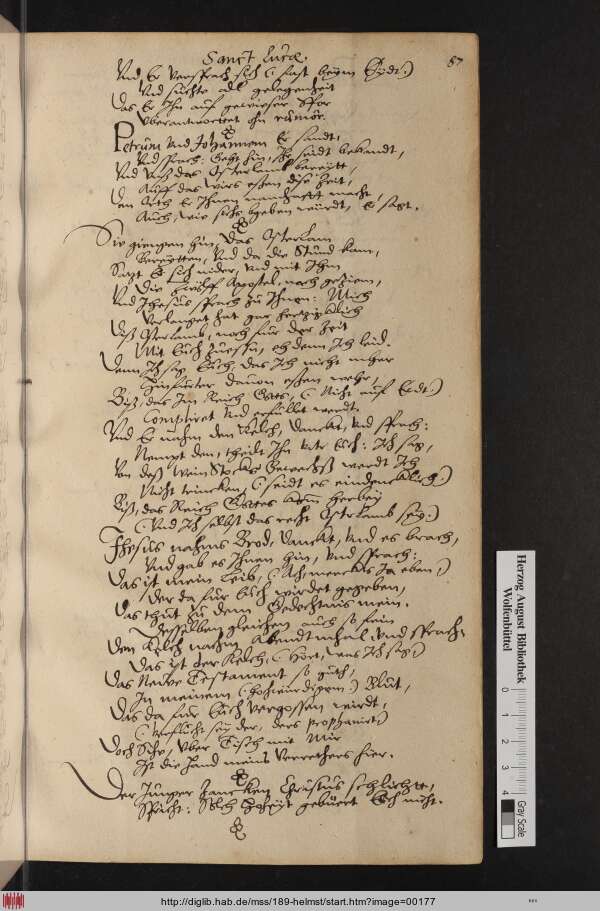 Sanct Lucæ.
87
Vnd Er versprach sich (: fast beym Eydt:)
Vnd suchte all gelegenheit
Das Er Ihn auf gewisser
Vberantworttet ohn rumor.
Petrum Vnd Johannem Er sandt,
Vnd sprach: Geht hin, Ihr seidt bekandt,
Vnd Vnß das Osterlamb bereytt,
Auff das wirs eßen dise Zeit,
den Orth Er Ihnen namhafft macht,
Auch, wie sichs bgeben würdt, Er sagt.
Sie giengen hin, das Osterlam
Bereytten, Vnd da die Stund kam,
Sazt Er sich nider, Vnd mit Ihm
Die Zwölff Apostel, nach geziem,
Vnd Ihesus sprach zu Ihnen: Mich
Verlanget hat gar herziglich
Diß Osterlamb, noch für der Zeit
Mit Euch zuessen, eh denn Ich leid.
Denn Ich sag Euch, das Ich nicht mher
Hinfürter dauon eßen wehr,
Biß, das Im Reich Gotts, (: Nicht auf Erdt:)
Compliret Vnd erfüllet werdt.
Vnd Er nahm den Kelch, danckt, Vnd sprach:
Nempt den, theilt Ihn Vntr Euch: Ich sag,
Von deß Wein Stocks Gewechß werdt Ich
Nicht trincken, (: seidt es eindencklich:)
Biß, das Reich Gottes komm herbey
(: Vnd Ich selbst das recht Osterlamb sey:)
Ihesus nahms Brod, danckt, Vnd es brach,
Vnd gab es Ihnen hin, Vnd sprach:
Das ist mein Leib, (: Ach, merckts Ja eben:)
Der da für Euch wirdet gegeben,
Das thut zu dem Gedechtnis mein.
Desselben gleichen auch so fein
Dem Kelch nachm Abendtmhal, Vnd sprach:
Das ist der Kelch, (: Hört, was Ich sag:)
Das Newe Testament so guth,
In meinem (: hohwürdigem:) Blut,
Das da für Euch Vergossen wirdt,
(: Verflucht sey der, ders prophanirt:)
Doch Sihe, Vber Tisch mit Mir
Ist die Hand meins Verrethers hier.
Der Junger Zancken Christus schlichtt,
Spricht: Solch Hoheyt gebürt Euch nicht.
Herzog August Bibliothek
Wolfenbüttel
0 1 2 3 4
Gray Scale
http://diglib.hab.de/mss/189-helmst/start.htm?image=00177